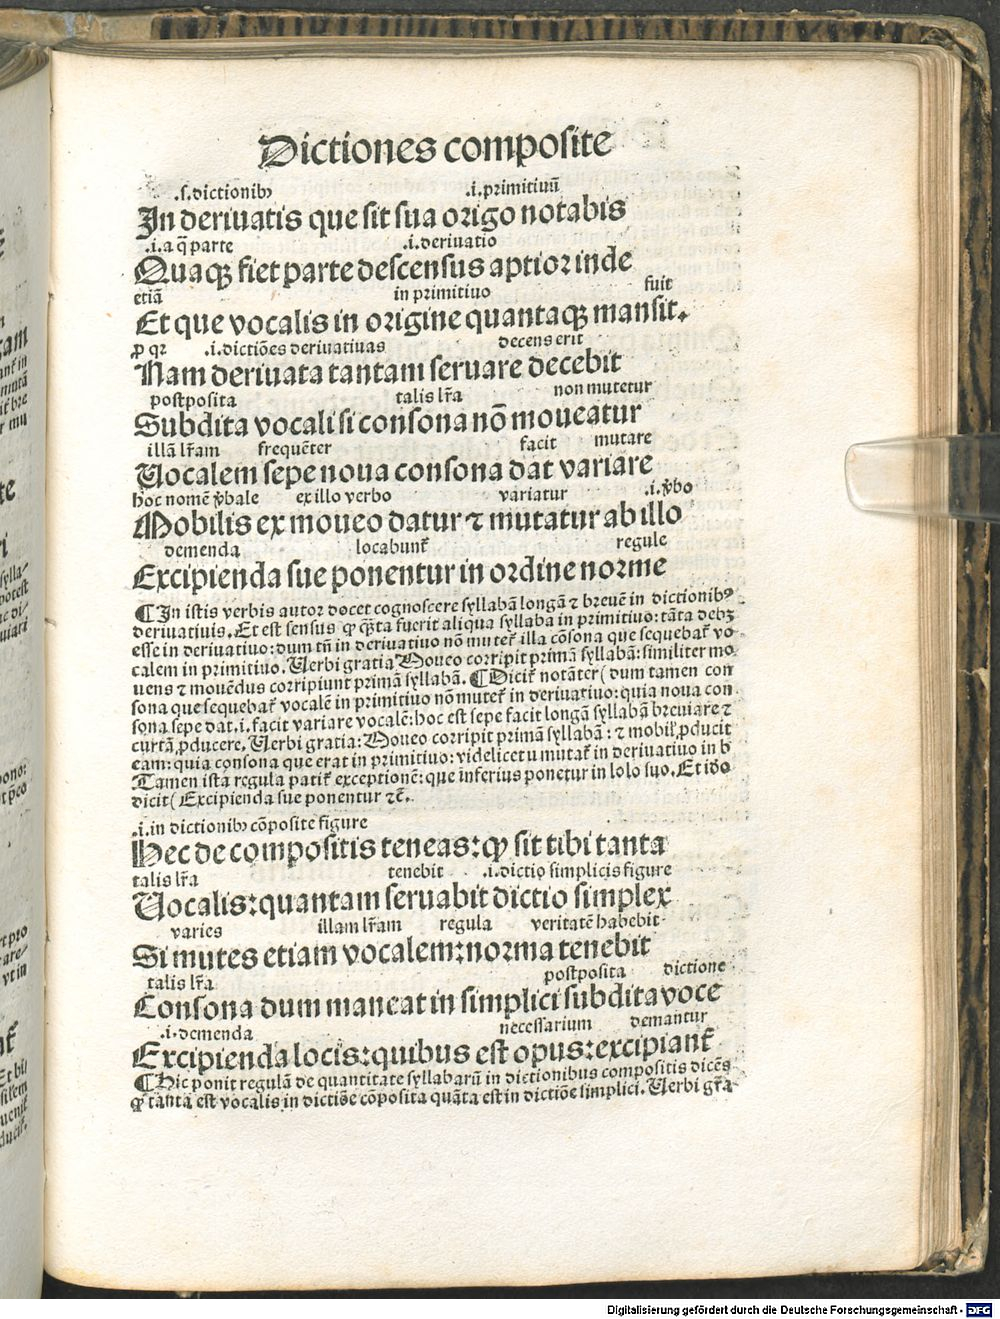 Dictiones composite
.s.dictionibꝫ .i.primitiuū
In deriuatis que sit sua origo notabis
.i.a q̄ parte .i.deriuatio
Quaqꝫ fiet parte descensus aptior inde
etiā in primitiuo fuit
Et que vocalis in origine quantaqꝫ mansit.
ꝓ qꝛ .i.dictiōes deriuatiuas decens erit
Nam deriuata tantam seruare decebit
postposita talis lr̄a non mutetur
Subdita vocali si consona nō moueatur
illā lr̄am frequēter facit mutare
Uocalem sepe noua consona dat variare
hoc nomē v̄bale ex illo verbo variatur .i.v̄bo
Mobilis ex moueo datur ⁊ mutatur ab illo
demenda locabunt᷑ regule
Excipienda sue ponentur in ordine norme
¶In istis verbis autor docet cognoscere syllabā longā ⁊ breuē in dictionibꝰ
deriuatiuis. Et est sensus ꝙ q̄ta fuerit aliqua syllaba in primitiuo: tāta debꝫ
esse in deriuatiuo: dum tn̄ in deriuatiuo nō muter᷑ illa cōsona que sequebat᷑ vo-
calem in primitiuo. Uerbi gratia Moueo corripit primā syllabā: similiter mo
uens ⁊ mouēdus corripiunt primā syllabā. ¶Dicit᷑ notāter( dum tamen con
sona que sequebat᷑ vocalē in primitiuo nō mutet᷑ in deriuatiuo: quia noua con
sona sepe dat .i. facit variare vocalē: hoc est sepe facit longā syllabā breuiare ⁊
curtā ꝓducere. Uerbi gratia: Moueo corripit primā syllabā: ⁊ mobilꝭ ꝓducit
eam: quia consona que erat in primitiuo: videlicet u mutat᷑ in deriuatiuo in b
Tamen ista regula patit᷑ exceptionē: que inferius ponetur in lolo suo. Et iđo
dicit( Excipienda sue ponentur ⁊c̄.
.i.in dictionibꝫ cōposite figure
Hec de compositis teneas: ꝙ sit tibi tanta
talis lr̄a tenebit .i.dictio simplicis figure
Uocalis: quantam seruabit dictio simplex
varies illam lr̄am regula veritatē habebit
Si mutes etiam vocalem: norma tenebit
talis lr̄a postposita dictione
Consona dum maneat in simplici subdita voce
.i.demenda necessarium demantur
Excipienda locis: quibus est opus: excipiant᷑
¶Hic ponit regulā de quantitate syllabarū in dictionibus compositis dicēs
ꝙ tanta est vocalis in dictiōe cōposita quāta est in dictiōe simplici. Uerbi gr̄a
Digitalisierung gefördert durch die Deutsche Forschungsgemeinschaft - DFG